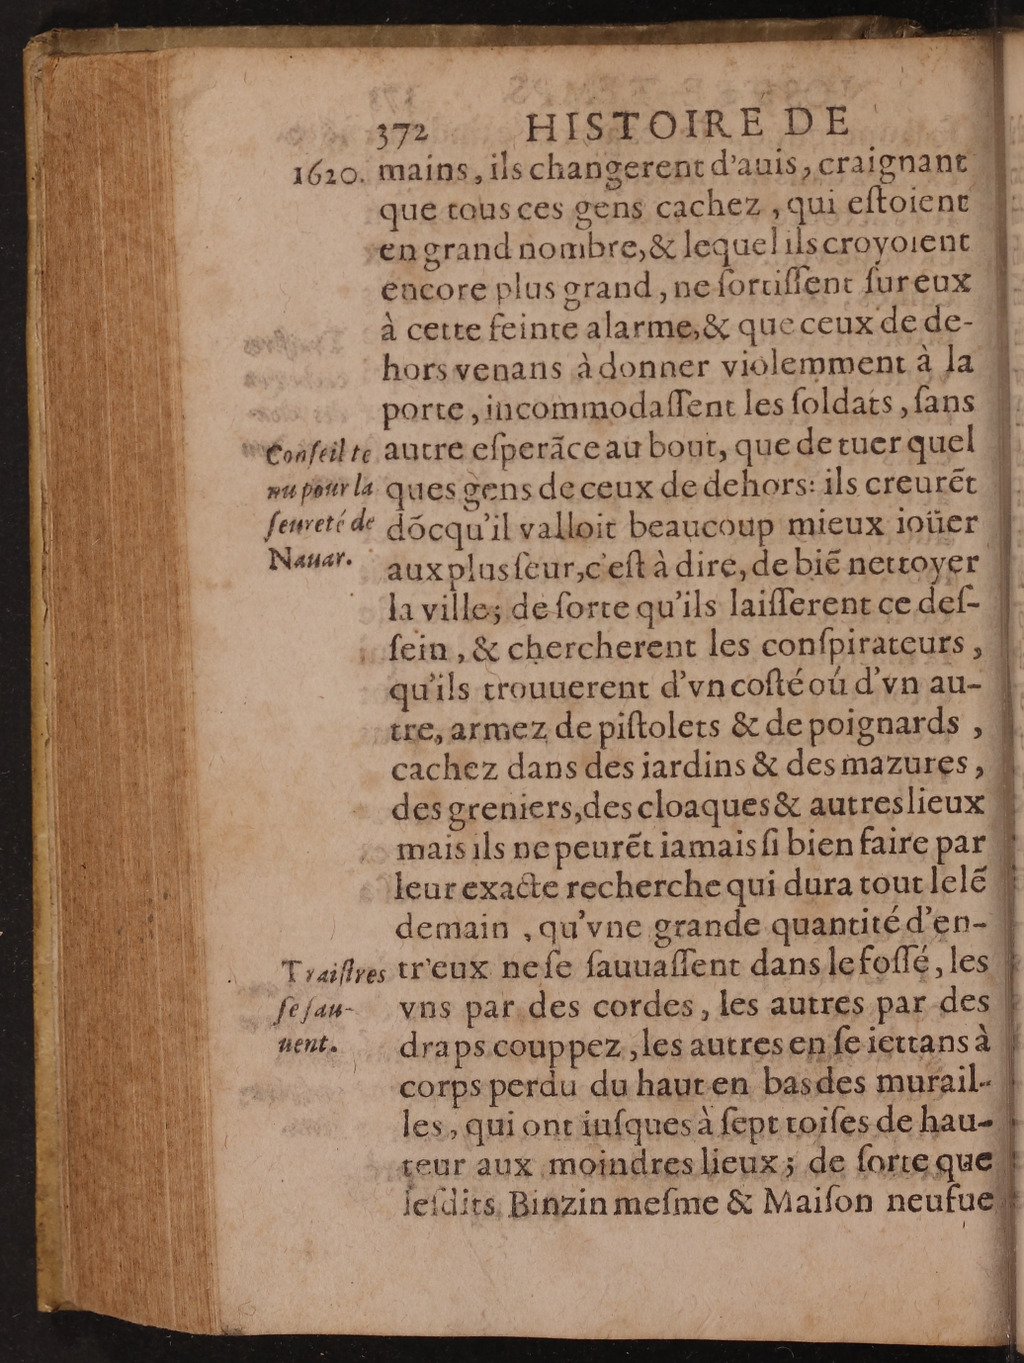 372 HISTOIRE DE
1620. mains, ils changerent d'auis, craignant
que tous ces gens cachez, qui eſtoient
en grand nombre, & lequel ils croyoient
encore plus grand, ne ſortiſſent ſur eux
à cette feinte alarme, & que ceux de de-
hors venans à donner violemment à la
porte, incommodaſſent les ſoldats, ſans
Conſeil te autre eſperāce au bout, que de tuer quel
nu pour la ques gens de ceux de dehors: ils creurēt
ſeureté de dōcqu'il valloit beaucoup mieux ioüer
Nauar. aux plus ſeur, c'eſt à dire, de biē nettoyer
la ville; de ſorte qu'ils laiſſerent ce deſ-
ſein, & chercherent les conſpirateurs,
qu'ils trouuerent d'vn coſté où d'vn au-
tre, armez de piſtolets & de poignards,
cachez dans des iardins & des mazures,
des greniers, des cloaques & autres lieux
mais ils ne peurēt iamais ſi bien faire par
leur exacte recherche qui dura tout lelē
demain, qu'vne grande quantité d'en-
Traiſtres tr'eux ne ſe ſauuaſſent dans le foſſé, les
ſe ſau- vns par des cordes, les autres par des
uent. draps couppez, les autres en ſe iettans à
corps perdu du haut en bas des murail-
les, qui ont iuſques à ſept toiſes de hau-
teur aux moindres lieux; de ſorte que
leſdits Binzin meſme & Maiſon neufue